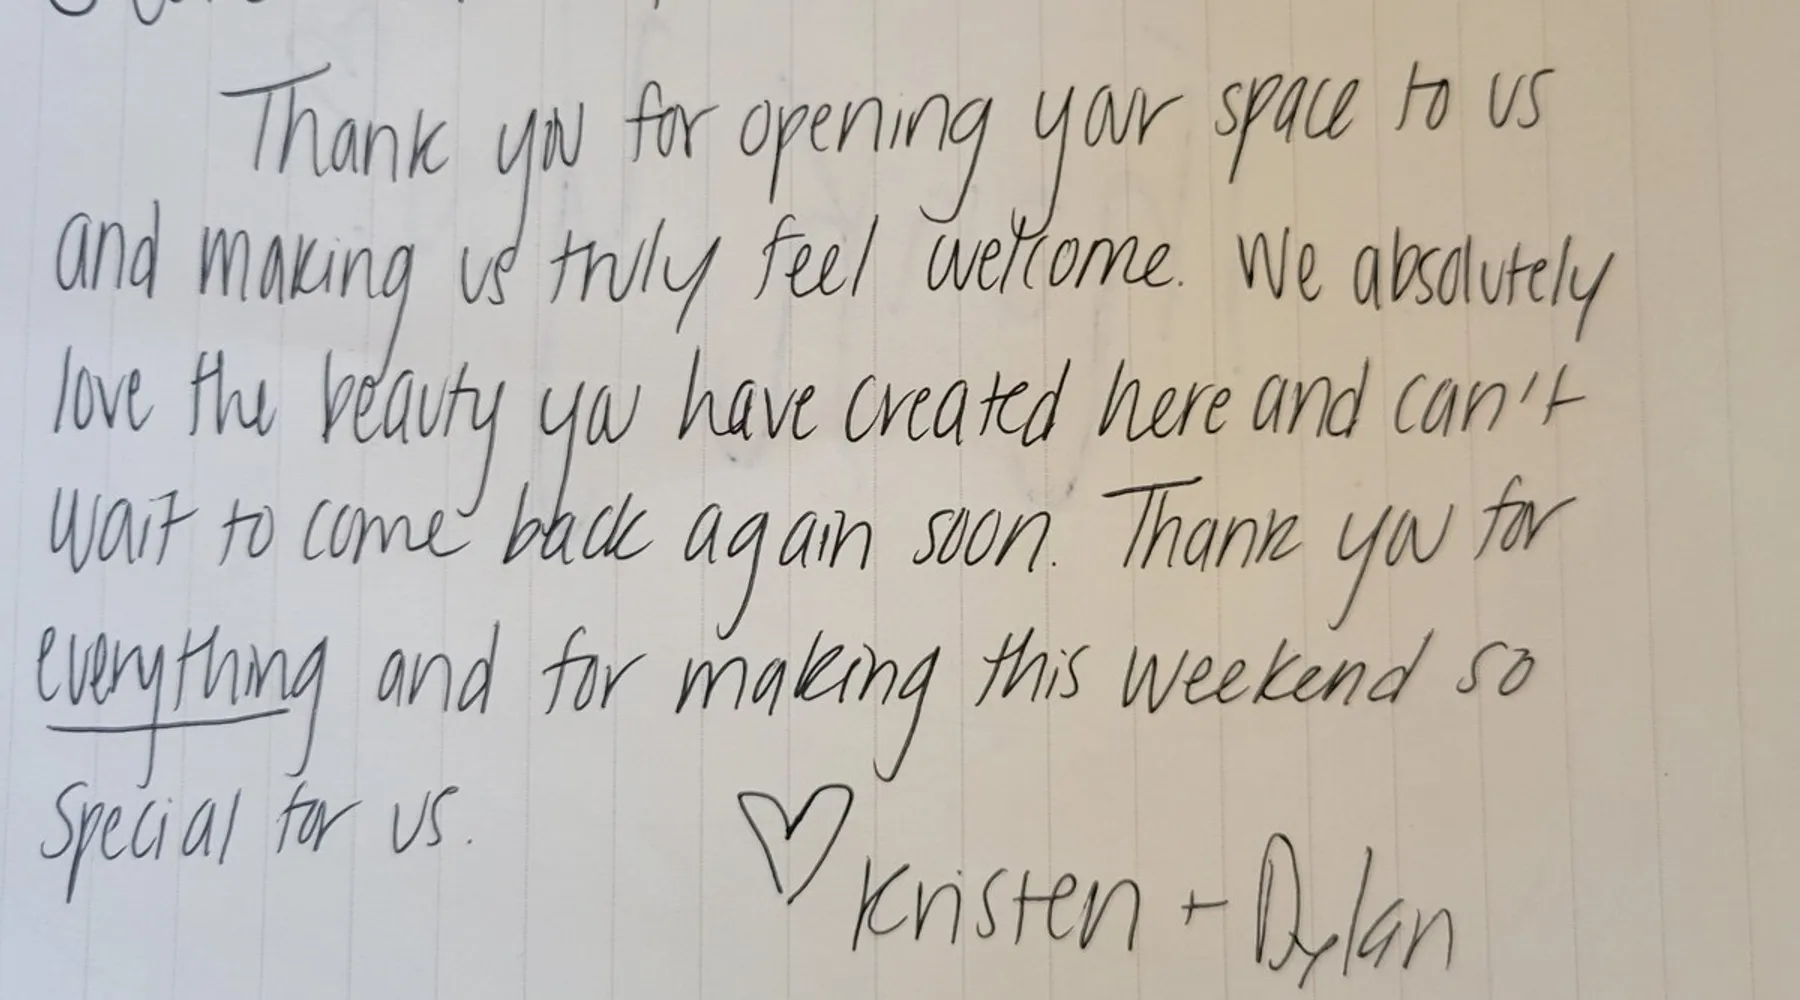 Thank you for opening your space to us
and making us truly feel welcome. We absolutely
love the beauty you have created here and can't
wait to come back again soon. Thank you for
everything and for making this weekend so
special for us.
♡ Kristen + Dylan